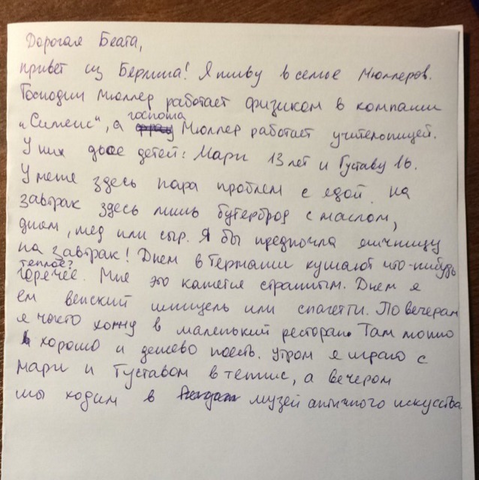 Дорогая Беата,
привет из Берлина! Я живу в семье Мюллеров.
Господин Мюллер работает физиком в компании
„Сименс", а госпожа Мюллер работает учительницей.
У них двое детей: Мари 13 лет и Густаву 16.
У меня здесь пара проблем с едой. На
завтрак здесь лишь бутерброд с маслом,
джем, мёд или сыр. Я бы предпочла яичницу
на завтрак! Днем в Германии кушают что-нибудь
теплое?
горячее. Мне это кажется странным. Днем я
ем венский шницель или спагетти. По вечерам
я часто хожу в маленький ресторан. Там можно
хорошо и дешево поесть. Утром я играю с
Мари и Густавом в теннис, а вечером
мы ходим в музей античного искусства